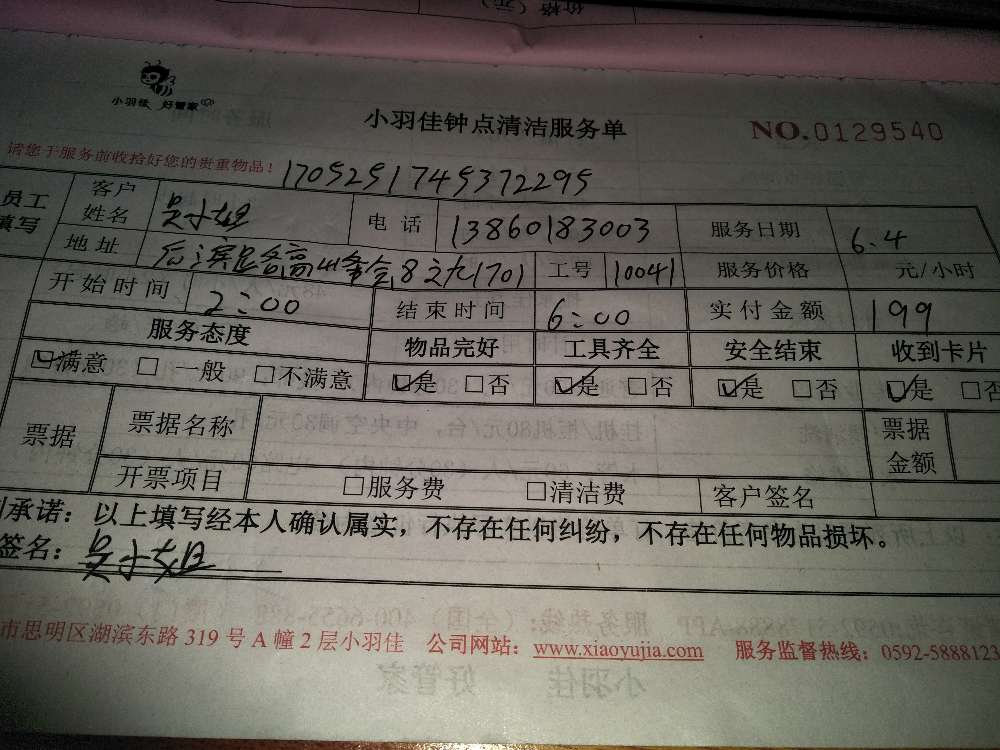 价格（元）
小羽佳 好管家
小羽佳钟点清洁服务单
NO.0129540
请您于服务前收拾好您的贵重物品！ 1705291749372295
员工填写 客户姓名 吴小姐 电 话 13860183003 服务日期 6.4
地址 高 8之九1701 工号 10041 服务价格 元/小时
开始时间 2:00 结束时间 6:00 实付金额 199
服务态度 物品完好 工具齐全 安全结束 收到卡片
☑满意 □ 一般 □不满意 ☑是 □否 ☑是 □否 ☑是 □否 ☑是 □否
票据 票据名称 票据金额
开票项目 □服务费 □清洁费 客户签名
承诺：以上填写经本人确认属实，不存在任何纠纷，不存在任何物品损坏。
签名：吴小姐
市思明区湖滨东路 319 号 A 幢 2 层小羽佳 公司网站：www.xiaoyujia.com 服务监督热线：0592-5888123